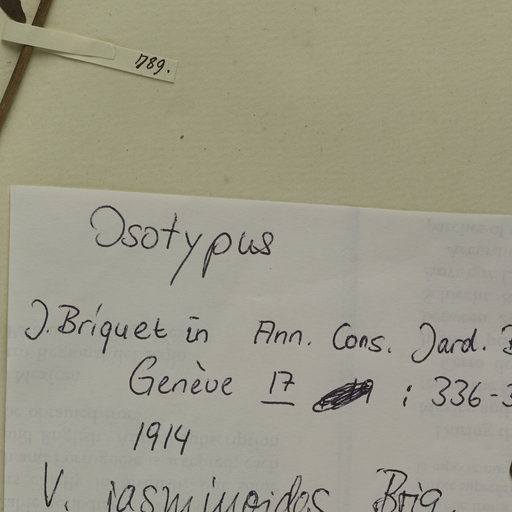 789.
Isotypus
J. Briquet in Ann. Cons. Jard.
Genève 17 : 336-3
1914
V. jasminoides Briq.